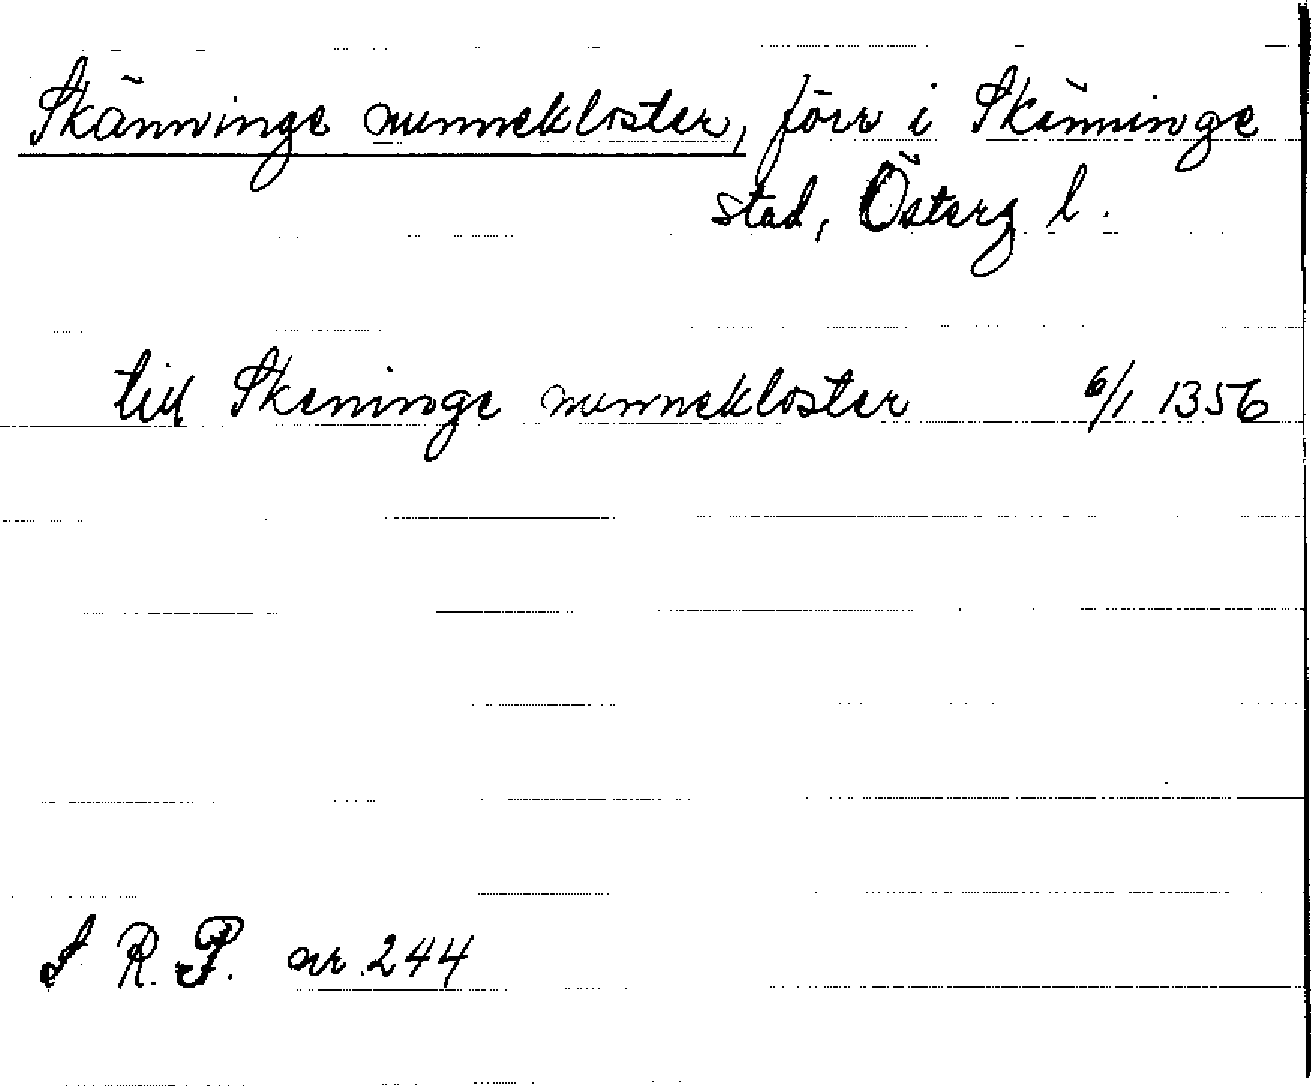 Skänninge nunnekloster, förr i Skänninge
stad, Österg l.
till Skeninge nunnekloster 6/1 1356
S R.P. nr 244